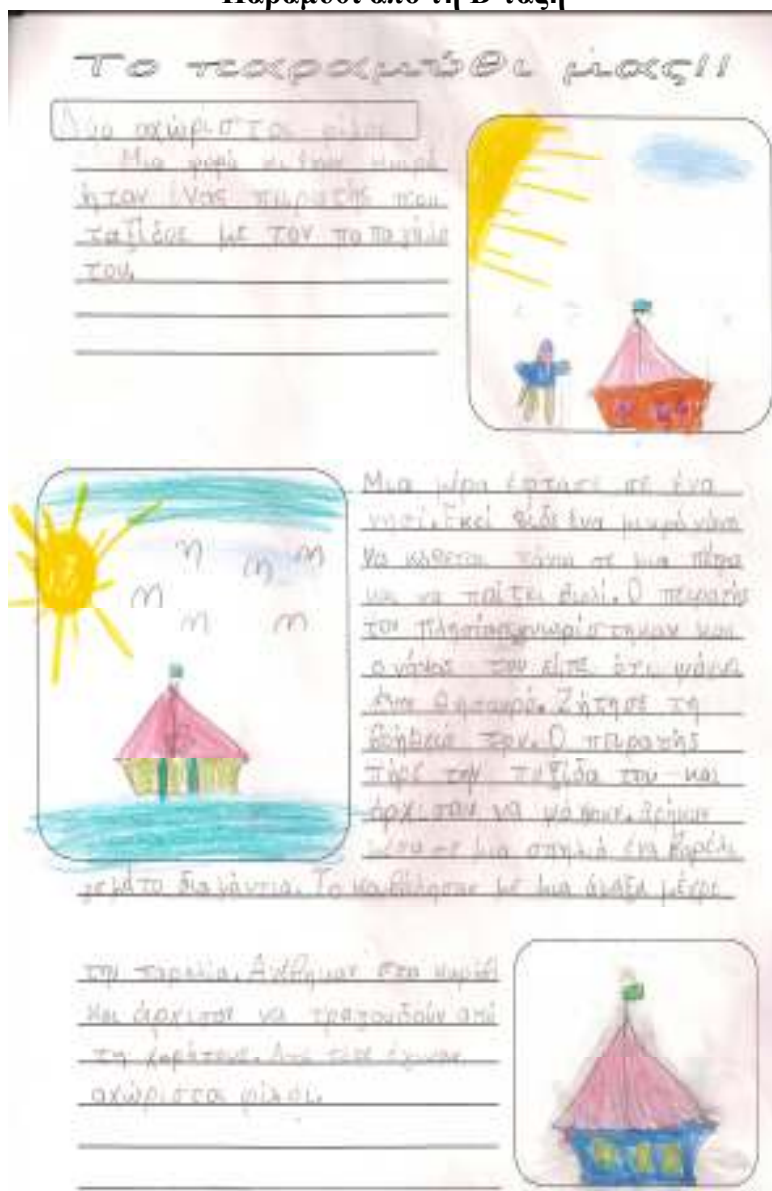 Παραμύθι από τη Β τάξη
Το παραμύθι μας!!
Δυο αχώριστοι φίλοι
Μια φορά κι έναν καιρό
ήταν ένας πειρατής που
ταξίδευε με τον παπαγάλο
του.
Μια μέρα έφτασε σε ένα
νησί. Εκεί είδε ένα μικρό νάνο
να κάθεται πάνω σε μια πέτρα
και να παίζει βιολί. Ο πειρατής
τον πλησίασε γνωρίστηκαν και
ο νάνος του είπε ότι ψάχνει
ένα θησαυρό. Ζήτησε τη
βοήθειά του. Ο πειρατής
πήρε την πυξίδα του και
άρχισαν να ψάχνουν. Βρήκαν
μέσα σε μια σπηλιά ένα βαρέλι
γεμάτο διαμάντια. Το κουβάλησαν με μια άμαξα μέχρι
την παραλία. Ανέβηκαν στο καράβι
και άρχισαν να τραγουδούν από
τη χαρά τους. Από τότε έγιναν
αχώριστοι φίλοι.